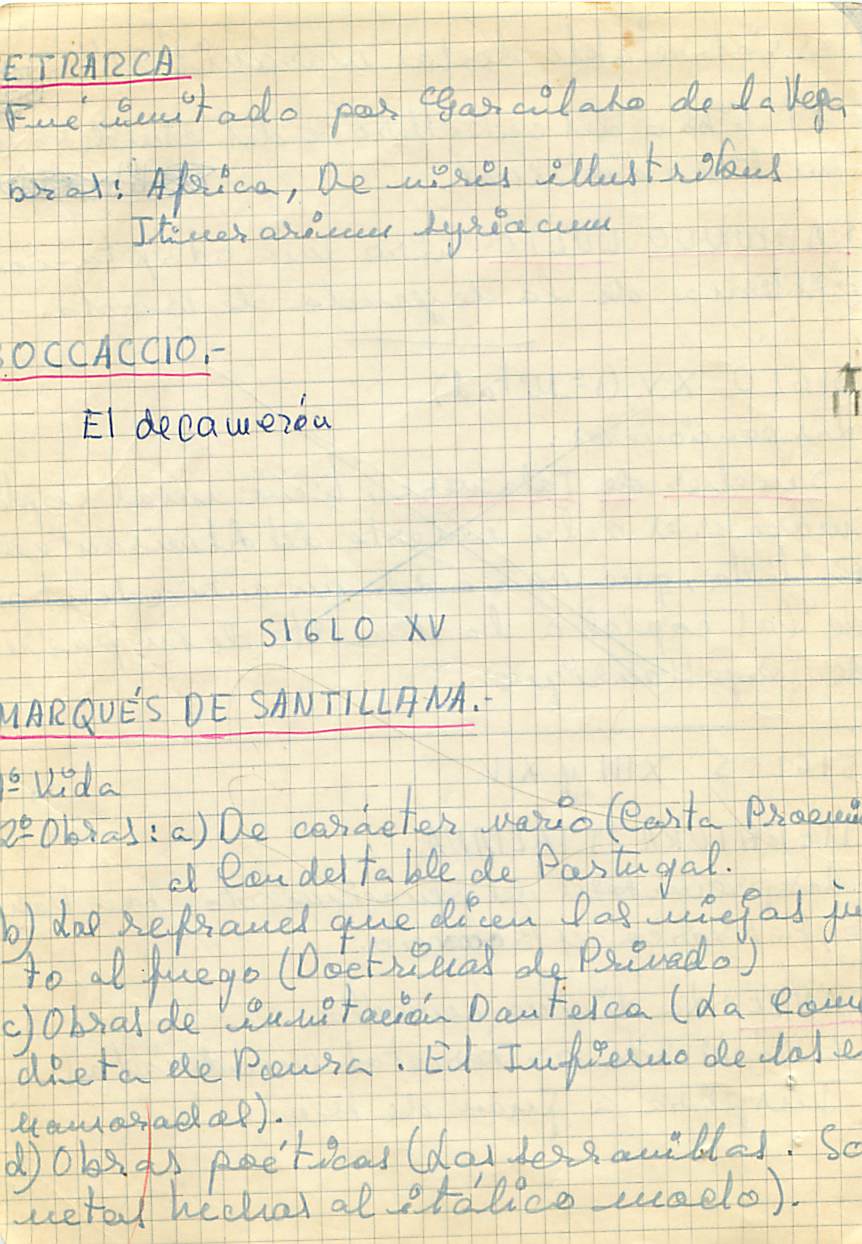 ETRARCA
Fué imitado por Garcilaso de la Vega
bras: Africa, De viris illustribus
Itinerarium syriacum
BOCCACCIO.-
El decamerón
SIGLO XV
MARQUÉS DE SANTILLANA.-
1º Vida
2º Obras: a) De carácter vario (Carta Proemi
al Condestable de Portugal.
b) Los refranes que dicen las viejas ju
to al fuego (Doctrinas de Privado)
c) Obras de imitación Dantesca (La Com
dieta de Ponza. El Infierno de los e
namorados).
d) Obras poéticas (Las serranillas. So
netos hechos al itálico modo).